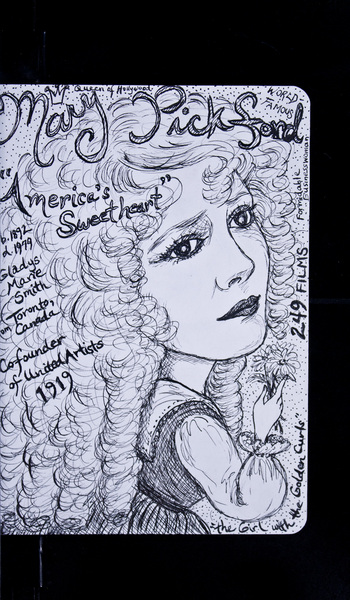 Queen of Hollywood
Mary Pickford
WORLD
FAMOUS
"America's
Sweetheart"
b. 1892
d. 1979
Gladys
Marie
Smith
Toronto,
Canada
Cofounder
of United Artists
1919
Formidable
Businesswoman
249 FILMS
"the Girl with the Golden Curls"